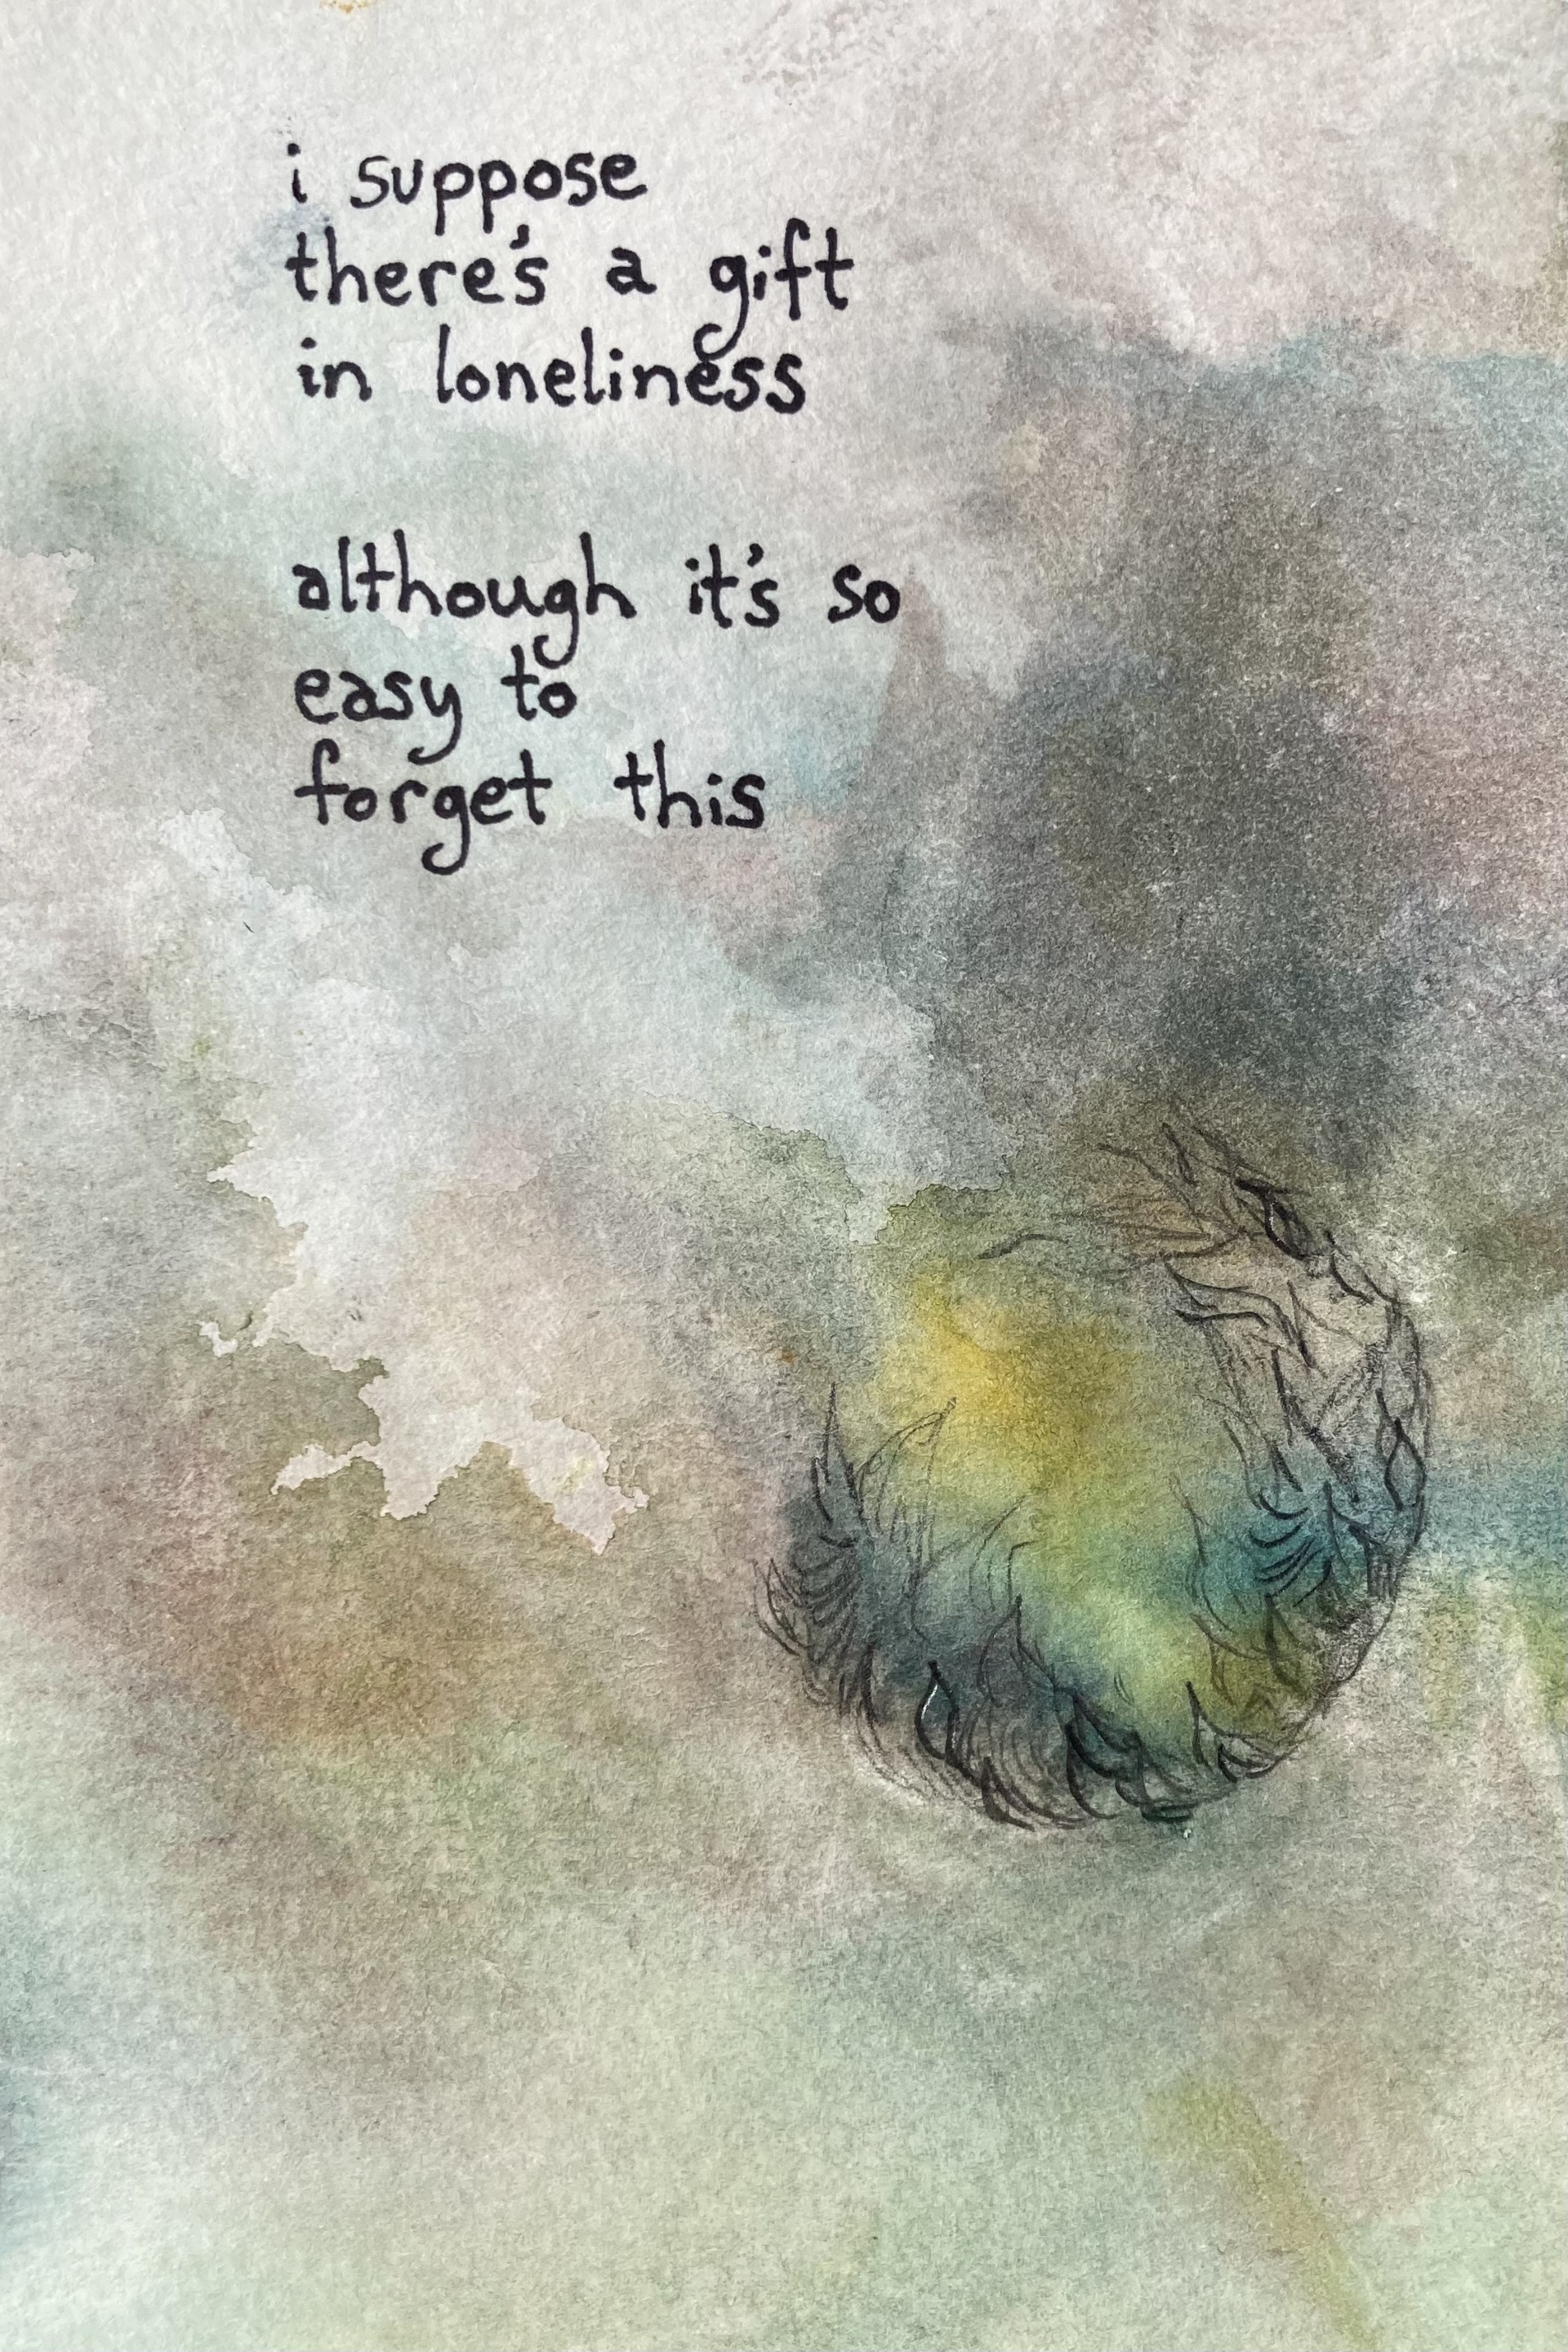 i suppose
there's a gift
in loneliness
although it's so
easy to
forget this